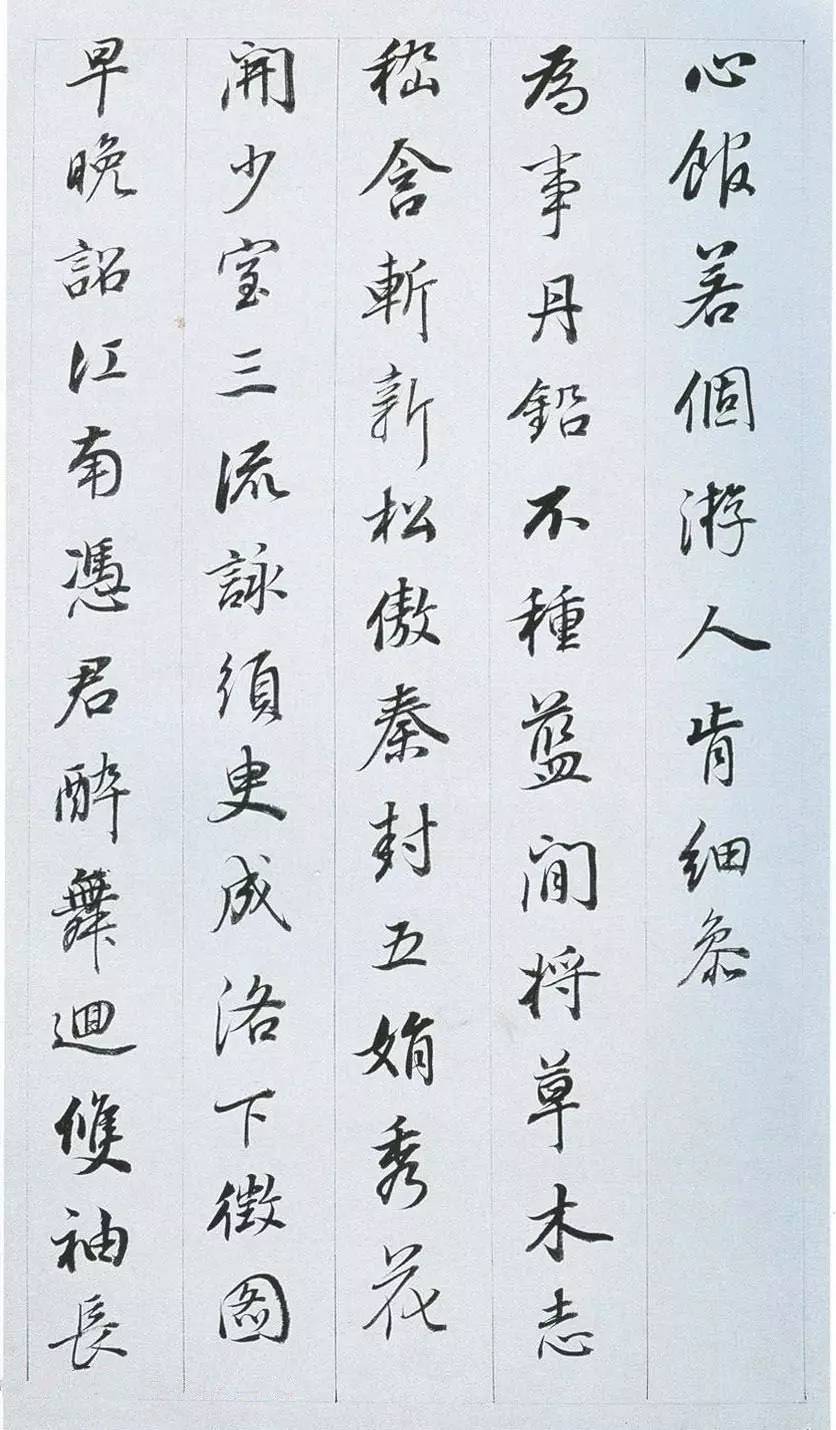 心眼若個游人肯細參
為事丹鉛不種藍間将草木志
嵇含斬新松傲秦封五娟秀花
開少室三流詠須臾成洛下徵圖
早晚詔江南憑君醉舞迴雙袖長